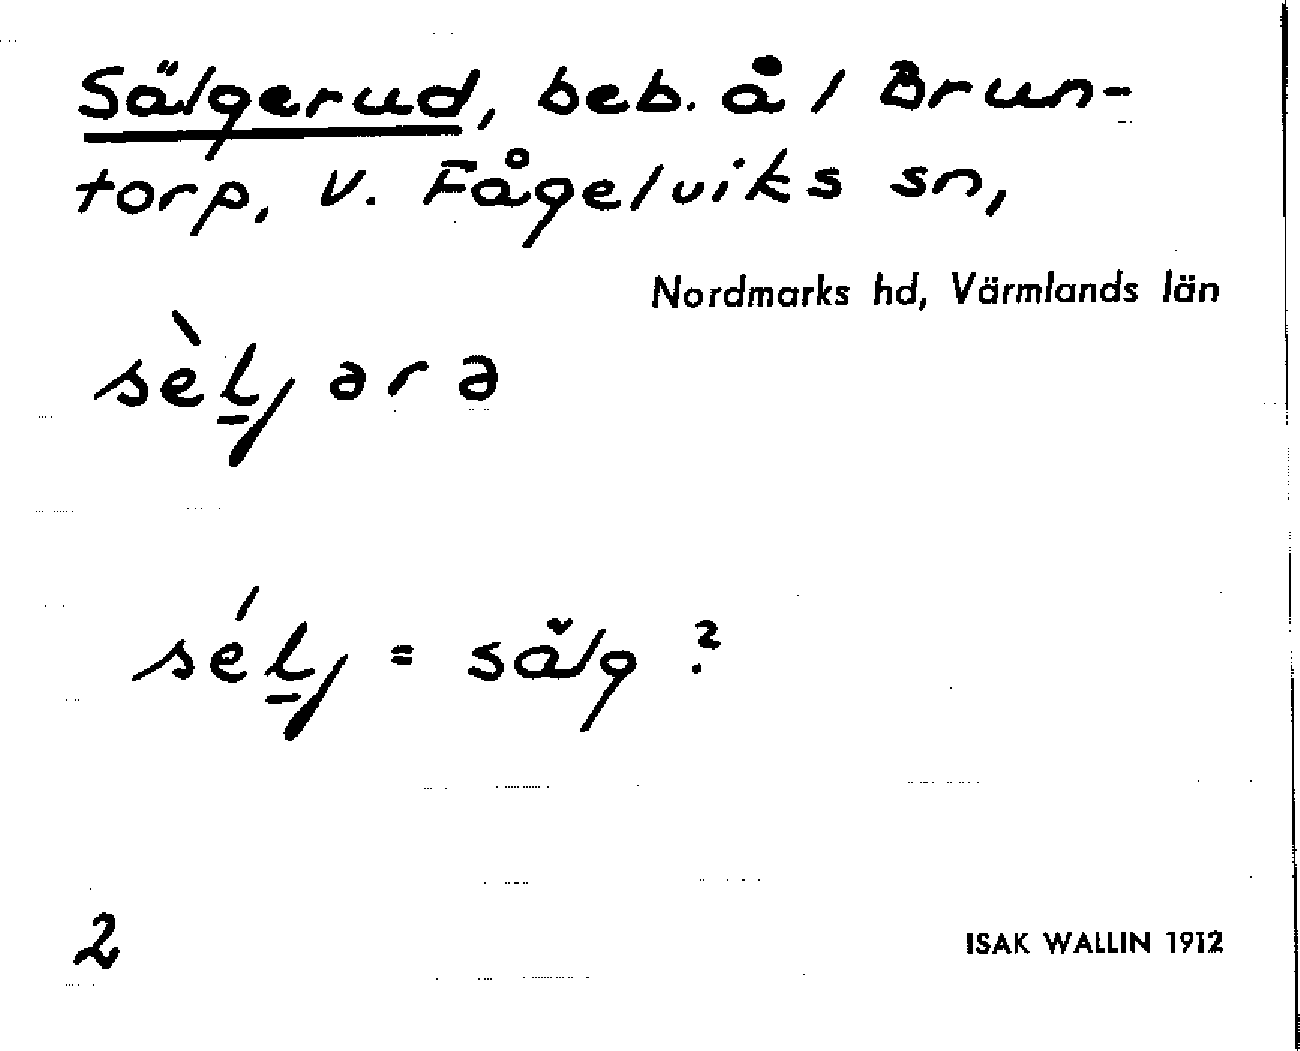 Sälgerud, beb. å 1 Brun-
torp, V. Fågelviks sn,
Nordmarks hd, Värmlands län
sèl̠jərə
sél̠j = sälg ?
2
ISAK WALLIN 1912